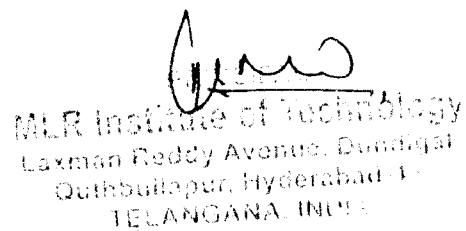 MLR Institute of Technology
Laxman Reddy Avenue, Dundigal
Quthbullapur, Hyderabad
TELANGANA, INDIA